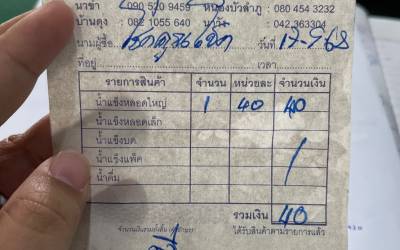 นาข่า 090 520 9459 หนองบัวลำภู : 080 454 3232
บ้านดุง : 082 1055 640 นาวัง : 042 363304
นามผู้ซื้อ วันที่ 17-9-68
ที่อยู่ เวลา
รายการสินค้า จำนวน หน่วยละ จำนวนเงิน
น้ำแข็งหลอดใหญ่ 1 40 40
น้ำแข็งหลอดเล็ก
น้ำแข็งบด
น้ำแข็งแพ็ค
น้ำดื่ม
รวมเงิน 40
ได้รับสินค้าตามรายการแล้ว